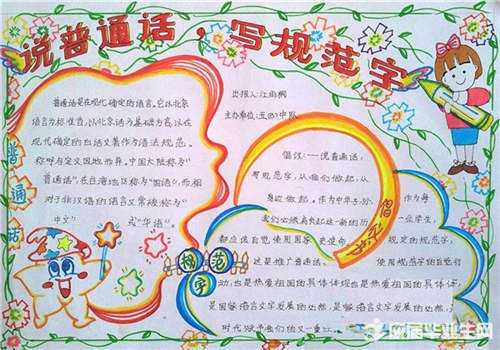 说普通话，写规范字
出报人：江雨桐
主办单位：五四中队
普通话
普通话是在现代确定的语言。它以北京
语言为标准音，以北京话为基础方言，以在
现代确定的白话文著作为语法规范。
称呼为定义因地而异。中国大陆称为“
普通话”，在台湾地区称为“国语”，而相
对于非汉语的语言又常被称为
“中文”或“华语”。
倡
倡议：——说普通话，
写规范字，从我们做起，从
身边做起。作为中华子孙，作为每
我们必须肩负起这一新的历 一些学生，
都应该自觉使用国家 规定的规范字，
这是推广普通话、 使用规范字的自觉行
动，也是热爱祖国的具体体现也是热爱祖国的具体体
是国家语言文字发展的必然，是国家语言文字发展的必然，
时代赋予我们的又一重
规范
字
应届毕业生网